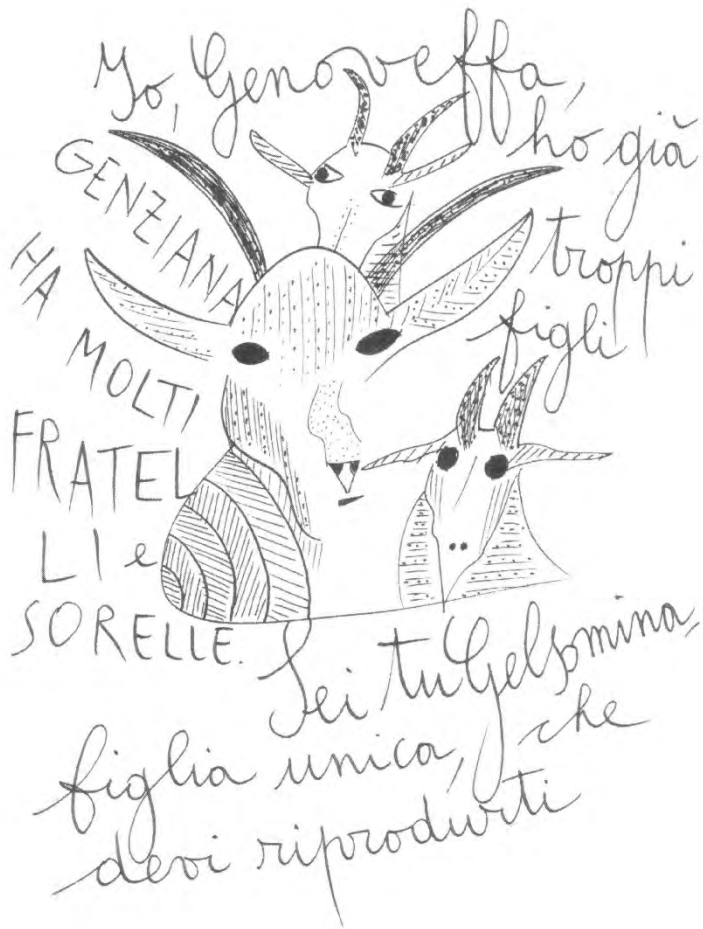 Io, Genoveffa,
ho già
troppi
figli
GENZIANA
HA
MOLTI
FRATEL
LI e
SORELLE.
Sei tu Gelsomina,
figlia unica, che
devi riprodurti